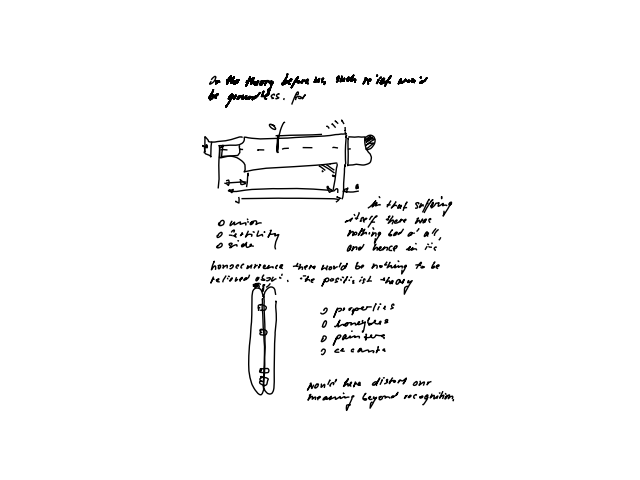 In the theory before us, such relief would
be groundless. For
in that suffering
itself there was
nothing bad at all,
and hence in its
union
fertility
side
nonoccurrence there would be nothing to be
relieved about. The positivist theory
properties
painters
would here distort our
meaning beyond recognition.